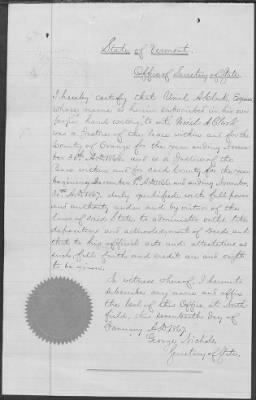 State of Vermont.
Office of Secretary of State.
I hereby certify that A. Clark, Esquire
whose name is herein subscribed in his own
proper hand writing to wit A Clark
was a Justice of the Peace within and for the
County of Orange for the year ending Novem-
ber 30th A.D. 1866. and is a Justice of the
Peace within and for said County for the year
beginning December 1st A.D. 1866. and ending November
30th A.D. 1867. duly qualified with full power
and authority under and by virtue of the
laws of said State to administer oaths take
depositions and acknowledgment of deeds and
that to his official acts and attestations as
such, full faith and credit are and ought
to be given.
In witness whereof, I hereunto
subscribe my name and affix
the seal of this Office, at North-
field, this seventeenth day of
January A.D. 1867.
George Nichols
Secretary of State.